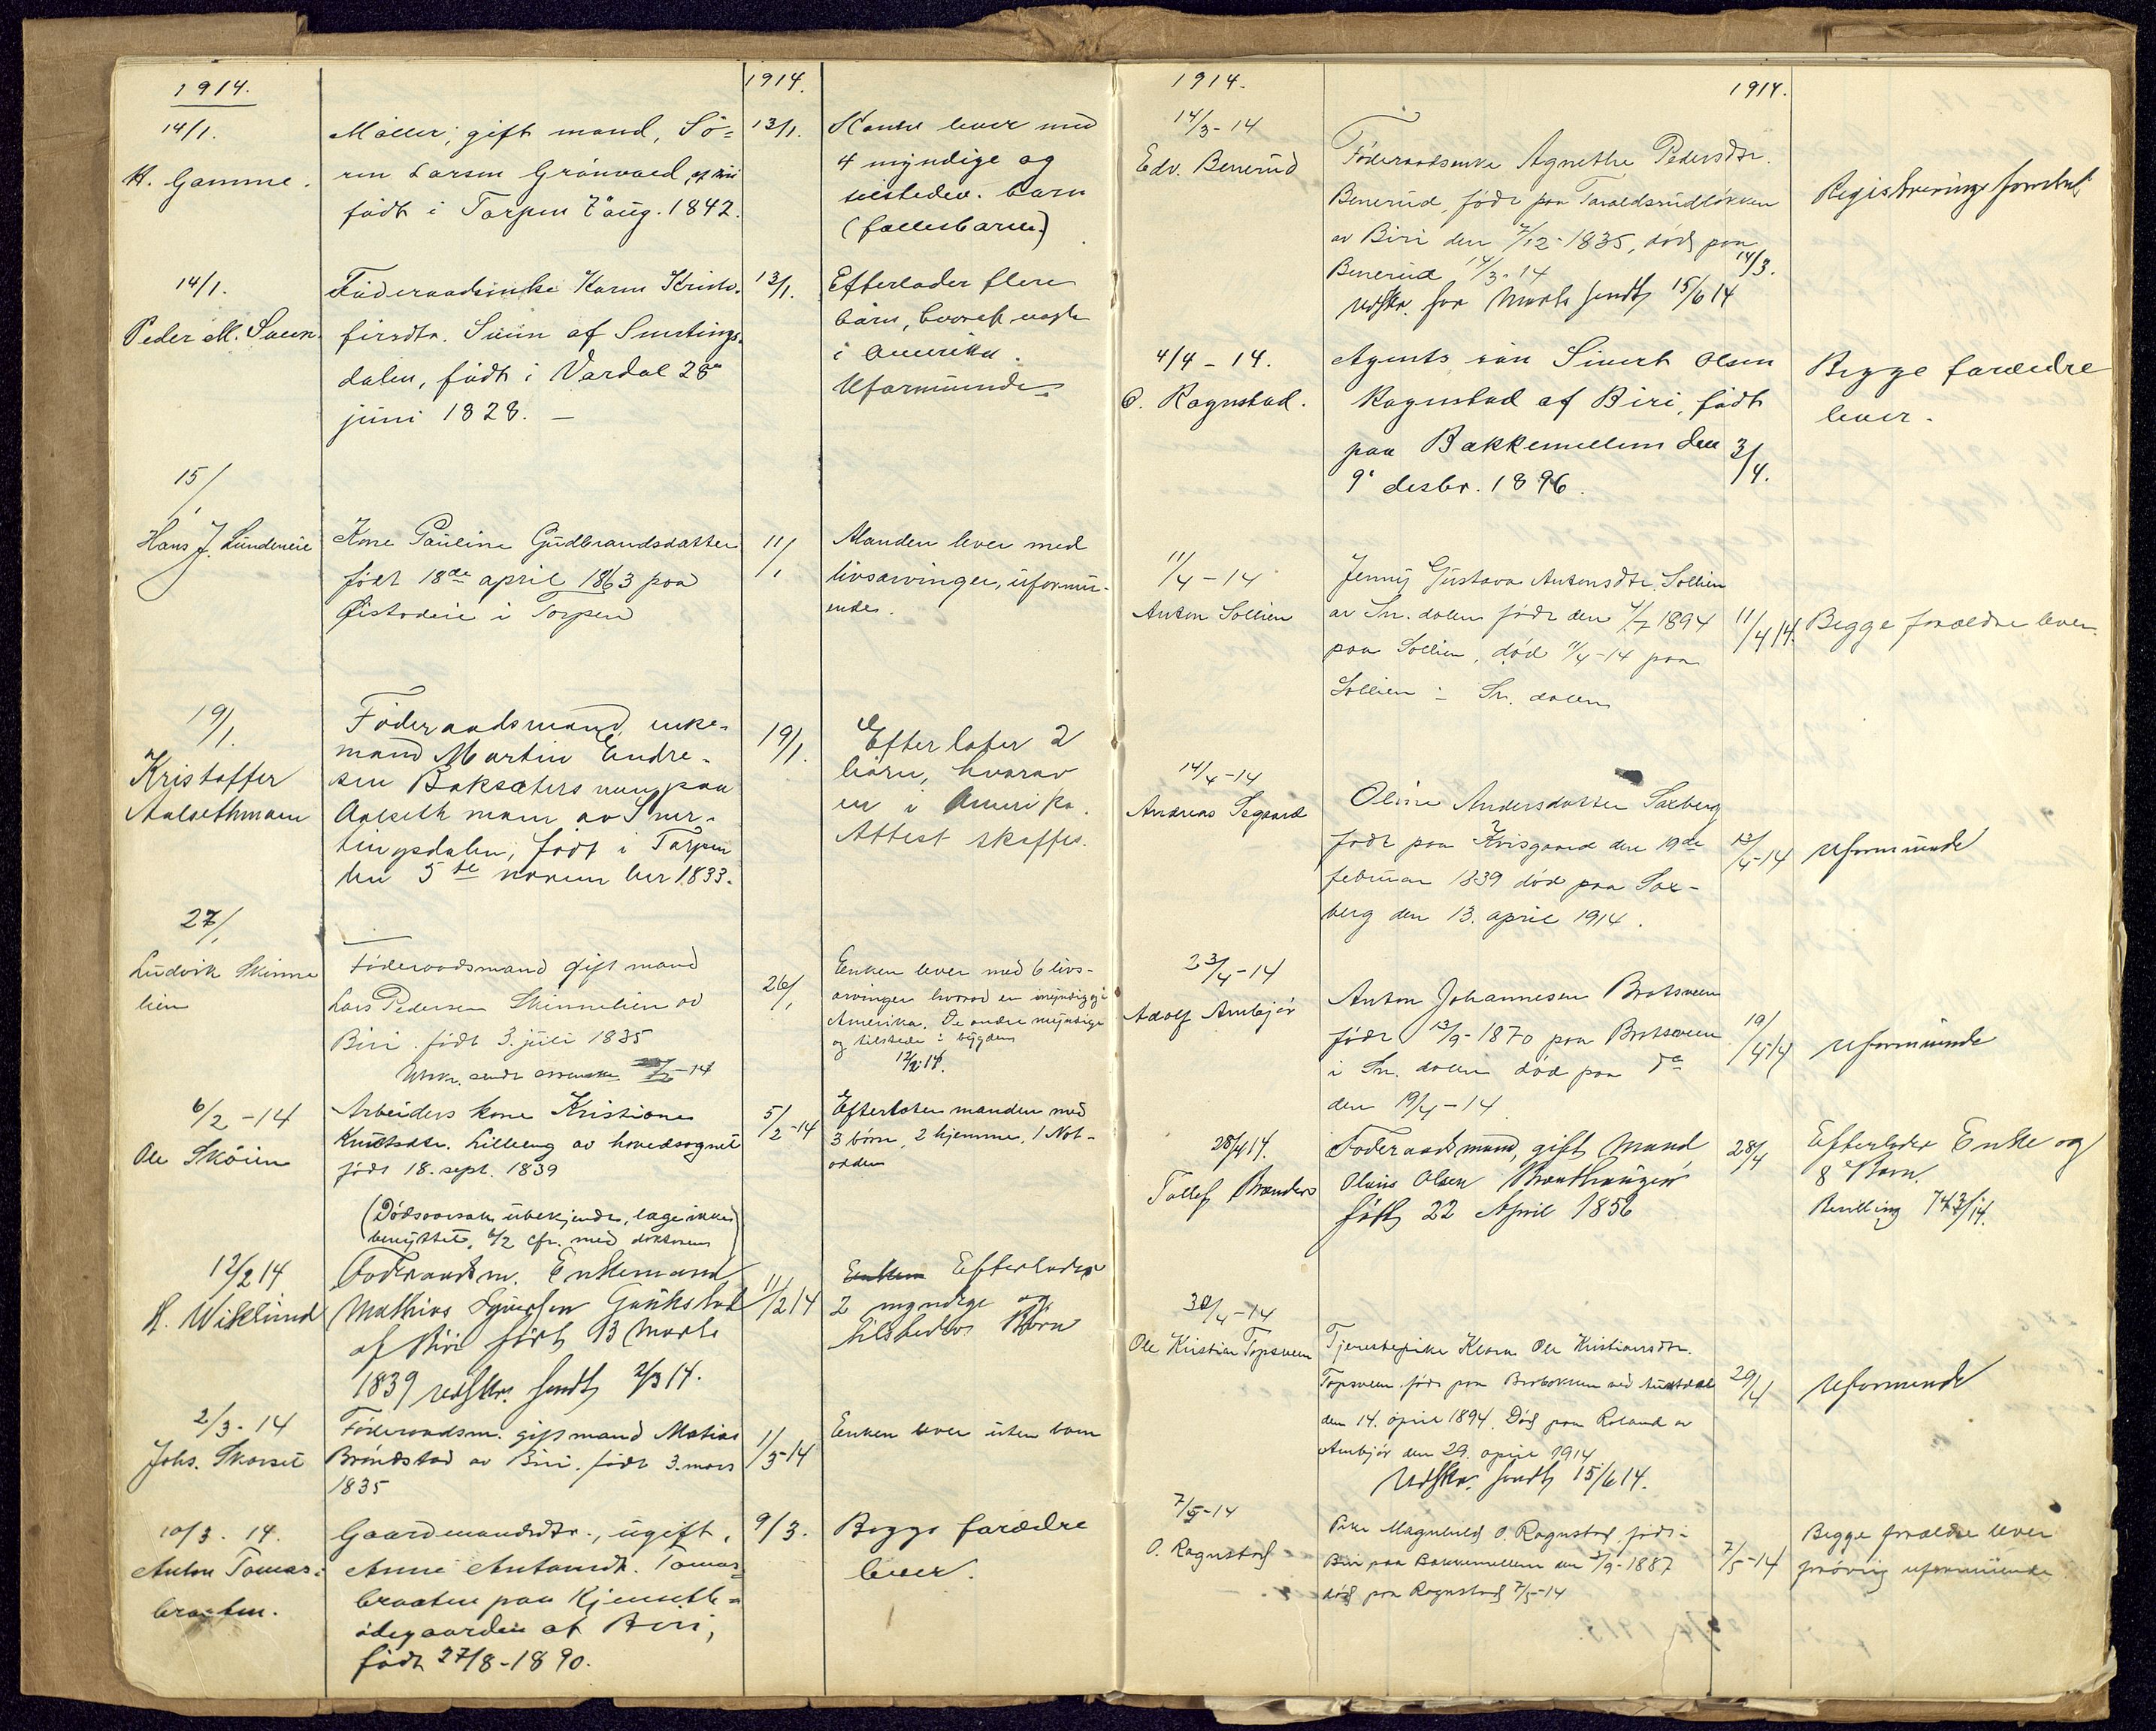 1914.
1914.
14/1.
H. Gamme.
Møller, gift mand, Sö=
ren Larsen Grönvold, af
født i Torpen 7de aug. 1842.
13/1.
lever med
4 myndige og
tilstedev. barn
(fællesbarn)
14/1.
Peder M. Sveen.
Föderaadsenke Karen Kristo-
fersdtr. Sveen af Snertings-
dalen, född i Vardal 28de
juni 1828. —
13/1.
Efterlader flere
barn, hvoraf nogle
i Amerika.
Uformuende.
15/1
Hans J. Lundeneie
Kone Pauline Gudbrandsdatter
født 18de april 1863 paa
i Torpen
11/1
Manden lever med
livsarvinger, uformu-
ende.
19/1.
Kristoffer
Aalsethmoen
Föderaadsmand, enke-
mand Martin Endre-
sen Baksæters paa
Aalseth moen av Sner-
tingsdalen, född i Torpen
den 5te november 1833.
19/1.
Efterlater 2
börn, hvorav
en i Amerika.
Attest skaffes.
27/1
Ludvik Skinne
lien
Föderaadsmand gift mand
Lars Pedersen Skinnelien av
Biri. född 3. juli 1835
Utskr. sendt -14
26/1
Enken lever med 6 livs-
arvinger hvorav en myndig i
Amerika. De andre myndige
og tilstede i bygden
12/2 14.
6/2 -14
Ole Sköien
Arbeiders kone Kristiane
Knutsdtr. Lilleeng av hovedsognet
född 18. sept. 1839
(Dödsaarsak ubekjendt, læge ikke
benyttet, 6/2 cfr. med doktoren)
5/2 -14
Efterlater manden med
3 börn, 2 hjemme, 1 Not-
odden
12/2 14
H. Wiklund
Föderaadsm. Enkemand
Mathias Gaukstad
af Biri född 13 Marts
1839 udskr. sendt 2/3 14.
11/2 14
Enken Efterlader
2 myndige og
tilstedev Börn
2/3 - 14
Johs. Skorset
Föderaadsm. gift mand Matias
Bröndstad av Biri. född 3. mars
1835
1/3 -14
Enken lever uten barn
10/3. 14.
Anton Tomas-
braaten.
Gaardmandsdtr., ugift,
Anne Antonsdtr. Tomas-
braaten paa Kjenseth-
ödegaarden af Biri,
född 27/8-1890.
9/3.
Begge forældre
lever.
1914.
1914.
14/3 - 14
Edv. Benerud
Föderaadsenke Agnethe Pedersdtr.
Benerud, född paa Taraldsrudlökken
av Biri den 7/12-1835, död paa
Benerud 14/3-14
Udskr. for Marts sendt 15/6 14
14/3.
Registreringsforretn
4/4 - 14.
O. Rognstad.
Agents sön Sivert Olsen
Rognstad af Biri, född
paa Bakkemellem den
9de desbr. 1896.
3/4.
Begge forældre
lever.
11/4 - 14
Anton Sollien
Jenny Gustava Antonsdtr. Sollien
av Sn. dalen född den 4/7 1894
paa Sollien, död 11/4-14 paa
Sollien i Sn. dalen
11/4 14.
Begge forældre lever.
14/4 - 14
Andreas Segaard
Oline Andersdatter Saxberg
född paa Krisgaard den 19de
februar 1839 död paa Sax-
berg den 13. april 1914.
13/4 -14
uformuende
23/4 - 14
Adolf Arnbjör
Anton Johannesen Brotsveen
född 13/9-1870 paa Brotsveen
i Sn. dalen död paa do
den 19/4 - 14
19/4 14
uformuende
28/4 14.
Tollef Brænden
Föderaadsmand, gift Mand
Olaus Olsen
född 22 April 1856
28/4
Efterlader Enke og
8 Barn.
Bevilling 14.
30/4 - 14
Ole Kristian Topsveen
Tjenestepike Klara Ole Kristiansdtr.
Topsveen. född paa
den 14. april 1894. Död paa Roland av
Arnbjör den 29. april 1914
Udskr. sendt 15/6 14.
29/4
uformuende
7/5 - 14
O. Rognstad
Pike Magnhild O. Rognstad, född i
Biri paa Bakkemellem den 3/9-1887
död paa Rognstad 7/5-14
7/5 -14
Begge forældre lever
forövrig uformuende